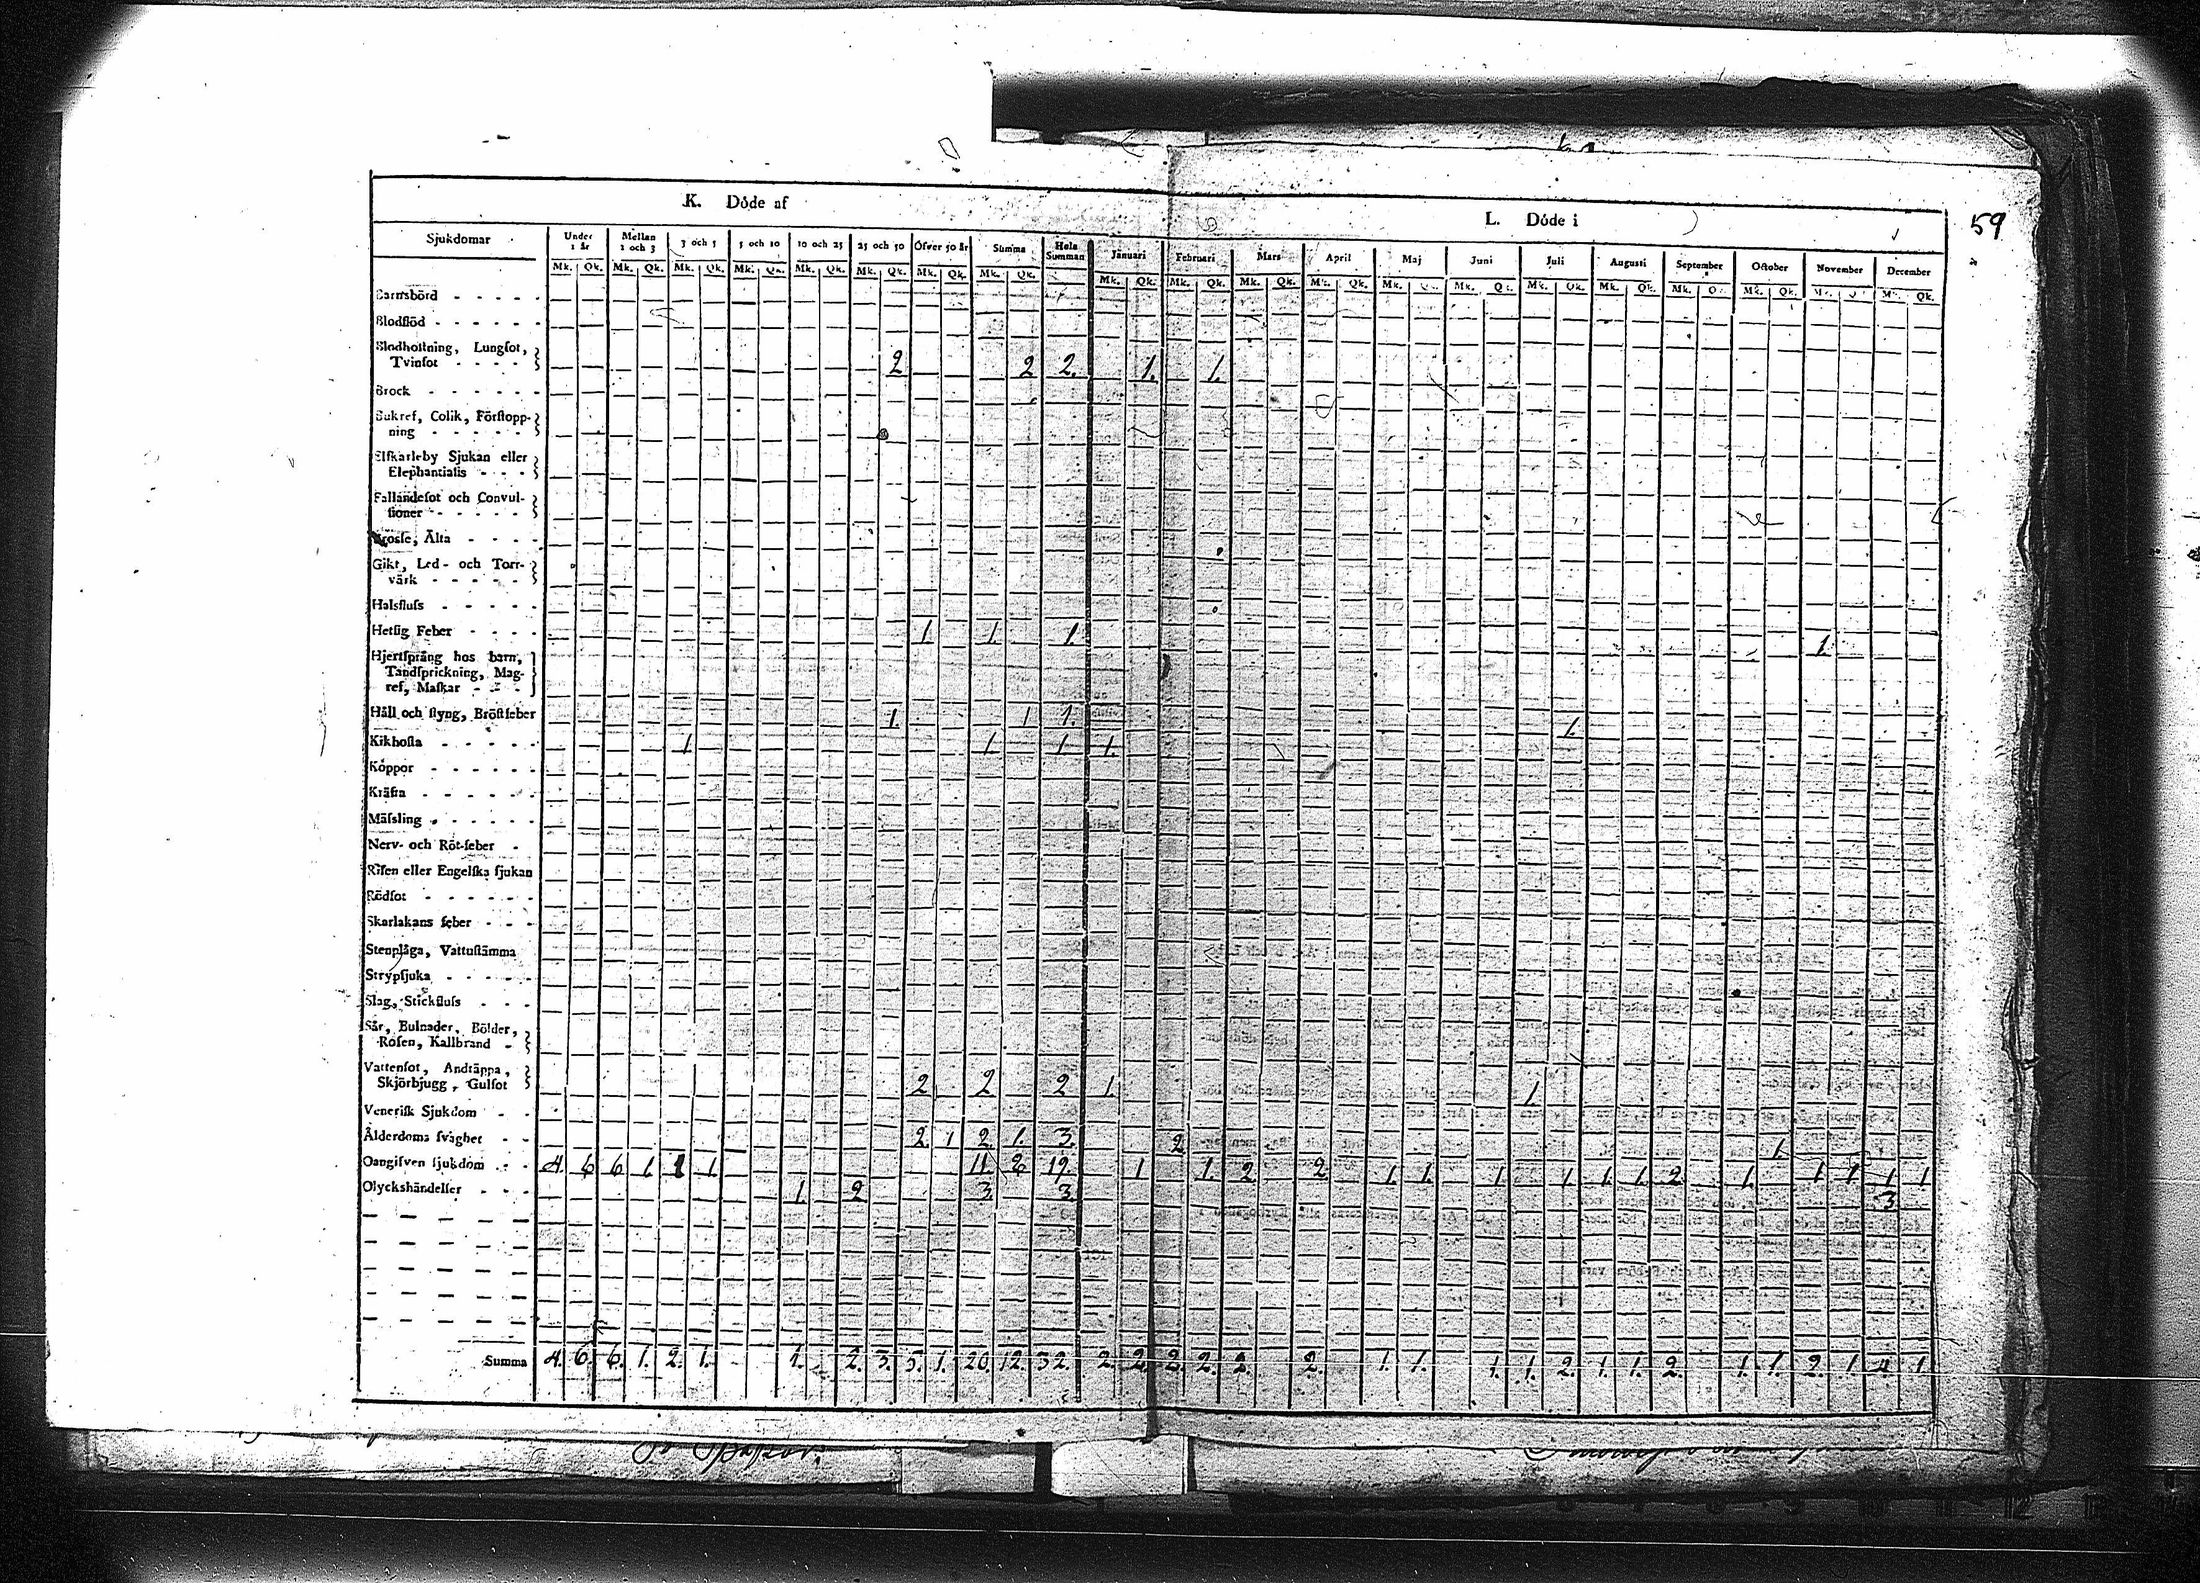 59
K. Döde af
L. Döde i
Sjukdomar Under 1 år Mellan 1 och 3 3 och 5 5 och 10 10 och 25 25 och 50 Öfver 50 år Summa Hela Summan Januari Februari Mars April Maj Juni Juli Augusti September October November December
Mk. Qk. Mk. Qk. Mk. Qk. Mk. Qk. Mk. Qk. Mk. Qk. Mk. Qk. Mk. Qk. Mk. Qk. Mk. Qk. Mk. Qk. Mk. Qk. Mk. Qk. Mk. Qk. Mk. Qk. Mk. Qk. Mk. Qk. Mk. Qk. Mk. Qk. Mk. Qk.
Barnsbörd - - - - -
Blodflöd - - - - - -
Blodhostning, Lungsot,
Tvinsot - - - - 2 2 2. 1. 1.
Brock - - - - - -
Bukref, Colik, Förstopp-
ning - - - - -
Elfkarleby Sjukan eller
Elephantiasis - - -
Fallandesot och Convul-
sioner - - - - -
Frosse, Älta - - - -
Gikt, Led- och Torr-
värk - - - - -
Halsfluss - - - - -
Hetsig Feber - - - - 1 1. 1. 1.
Hjertsprång hos barn,
Tandsprickning, Mag-
ref, Maskar - - -
Håll och styng, Bröstfeber 1. 1 1. 1.
Kikhosta - - - - - 1 1. 1 1.
Koppor - - - - - -
Kräfta - - - - - -
Mässling - - - - -
Nerv- och Röt-feber -
Risen eller Engelska sjukan
Rödsot - - - - - -
Skarlakans feber - - -
Stenplåga, Vattustämma
Strypsjuka - - - -
Slag, Stickfluss - - -
Sår, Bulnader, Bölder,
Rosen, Kallbrand -
Vattensot, Andtäppa,
Skjörbjugg, Gulsot 2 2 2 1. 1
Venerisk Sjukdom - -
Ålderdoms svaghet - - 2. 1 2. 1. 3. 2 1
Oangifven sjukdom - - - 4. 6 6 1. 1 1. 11. 8 19. 1 1. 2 2 1. 1. 1 1 1. 1. 2 1. 1 1 1 1
Olyckshändelser - - - 1. 2 3. 3. 3
Summa 4. 6. 6. 1. 2. 1. 1. 2. 3. 5. 1. 20. 12. 32. 2. 2. 2. 2. 2. 2. 1. 1. 1. 1. 2. 1. 1. 2. 1. 1. 2. 1. 4 1.